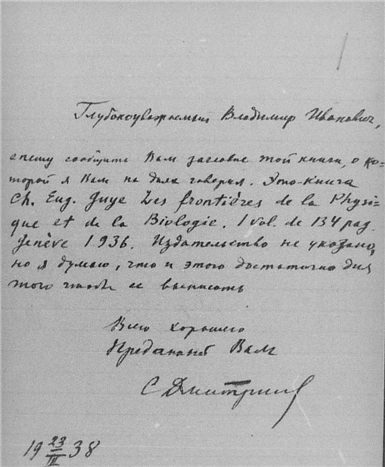 Глубокоуважаемый Владимир Иванович,
спешу сообщить Вам заглавие той книги, о ко-
торой я Вам на днях говорил. Это-книга
Ch. Eug. Guye Les frontières de la Physi-
que et de la Biologie. 1 vol. de 134 pag.
Genève 1936. Издательство не указано,
но я думаю, что и этого достаточно для
того чтобы ее выписать
Всего хорошего
Преданный Вам
19 23/II 38